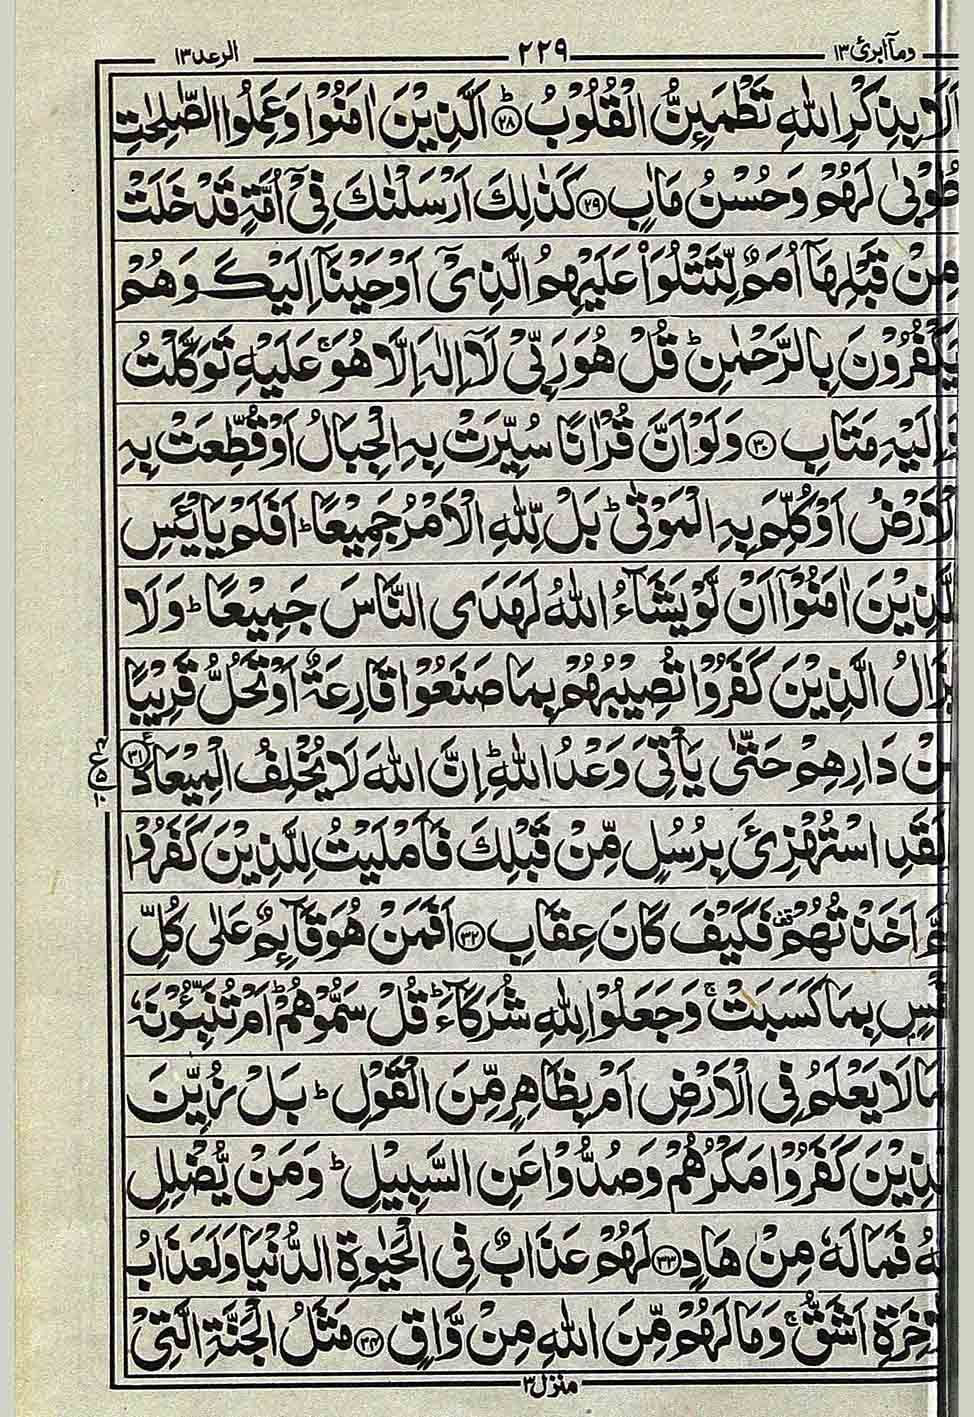 وماۤ ابرئ ١٣
٢٢٩
الرعد ١٣
اَلَا بِذِكْرِ اللّٰهِ تَطْمَئِنُّ الْقُلُوْبُ ؕ﴿۲۸﴾ اَلَّذِيْنَ اٰمَنُوْا وَعَمِلُوا الصّٰلِحٰتِ
طُوْبٰى لَهُمْ وَحُسْنُ مَاٰبٍ ﴿۲۹﴾ كَذٰلِكَ اَرْسَلْنٰكَ فِيْۤ اُمَّةٍ قَدْ خَلَتْ
مِنْ قَبْلِهَاۤ اُمَمٌ لِّتَتْلُوَا۟ عَلَيْهِمُ الَّذِيْۤ اَوْحَيْنَاۤ اِلَيْكَ وَهُمْ
يَكْفُرُوْنَ بِالرَّحْمٰنِ ؕ قُلْ هُوَ رَبِّيْ لَاۤ اِلٰهَ اِلَّا هُوَ ۚ عَلَيْهِ تَوَكَّلْتُ
وَاِلَيْهِ مَتَابِ ﴿۳۰﴾ وَلَوْ اَنَّ قُرْاٰنًا سُيِّرَتْ بِهِ الْجِبَالُ اَوْ قُطِّعَتْ بِهِ
الْاَرْضُ اَوْ كُلِّمَ بِهِ الْمَوْتٰى ؕ بَلْ لِّلّٰهِ الْاَمْرُ جَمِيْعًا ؕ اَفَلَمْ يَايْـَٔسِ
الَّذِيْنَ اٰمَنُوْۤا اَنْ لَّوْ يَشَآءُ اللّٰهُ لَهَدَى النَّاسَ جَمِيْعًا ؕ وَلَا
يَزَالُ الَّذِيْنَ كَفَرُوْا تُصِيْبُهُمْ بِمَا صَنَعُوْا قَارِعَةٌ اَوْ تَحُلُّ قَرِيْبًا
مِّنْ دَارِهِمْ حَتّٰى يَاْتِيَ وَعْدُ اللّٰهِ ؕ اِنَّ اللّٰهَ لَا يُخْلِفُ الْمِيْعَادَ ﴿۳۱﴾
وَلَقَدِ اسْتُهْزِئَ بِرُسُلٍ مِّنْ قَبْلِكَ فَاَمْلَيْتُ لِلَّذِيْنَ كَفَرُوْا
ثُمَّ اَخَذْتُهُمْ ۫ فَكَيْفَ كَانَ عِقَابِ ﴿۳۲﴾ اَفَمَنْ هُوَ قَآئِمٌ عَلٰى كُلِّ
نَفْسٍ بِمَا كَسَبَتْ ۚ وَجَعَلُوْا لِلّٰهِ شُرَكَآءَ ؕ قُلْ سَمُّوْهُمْ ؕ اَمْ تُنَبِّـُٔوْنَهٗ
بِمَا لَا يَعْلَمُ فِي الْاَرْضِ اَمْ بِظَاهِرٍ مِّنَ الْقَوْلِ ؕ بَلْ زُيِّنَ
لِلَّذِيْنَ كَفَرُوْا مَكْرُهُمْ وَصُدُّوْا عَنِ السَّبِيْلِ ؕ وَمَنْ يُّضْلِلِ
اللّٰهُ فَمَا لَهٗ مِنْ هَادٍ ﴿۳۳﴾ لَهُمْ عَذَابٌ فِي الْحَيٰوةِ الدُّنْيَا وَلَعَذَابُ
الْاٰخِرَةِ اَشَقُّ ۚ وَمَا لَهُمْ مِّنَ اللّٰهِ مِنْ وَّاقٍ ﴿۳۴﴾ مَثَلُ الْجَنَّةِ الَّتِيْ
منزل ٣